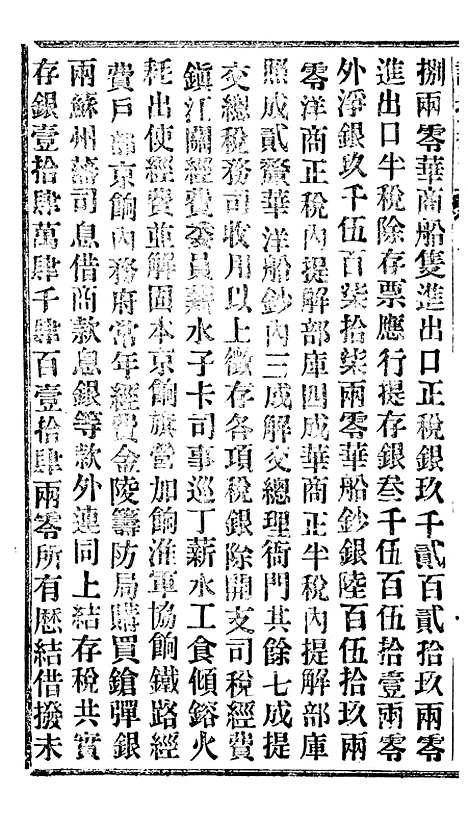 捌兩零華商船隻進出口正稅銀玖千貳百貳拾玖兩零
進出口半稅除存票應行提存銀叁千伍百伍拾壹兩零
外淨銀玖千伍百柒拾柒兩零華船鈔銀陸百伍拾玖兩
零洋商正稅內提解部庫四成華商正半稅內提解部庫
照成貳釐華洋船鈔內三成解交總理衙門其餘七成提
交總稅務司收用以上徵存各項稅銀除開支司稅經費
鎭江關經費委員薪水子卡司事巡丁薪水工食傾鎔火
耗出使經費並解固本京餉旗營加餉淮軍協餉鐵路經
費戶部京餉內務府常年經費金陵籌防局購買鎗彈銀
兩蘇州藩司息借商款息銀等款外連同上結存稅共實
存銀壹拾肆萬肆千肆百壹拾肆兩零所有歷結借撥未